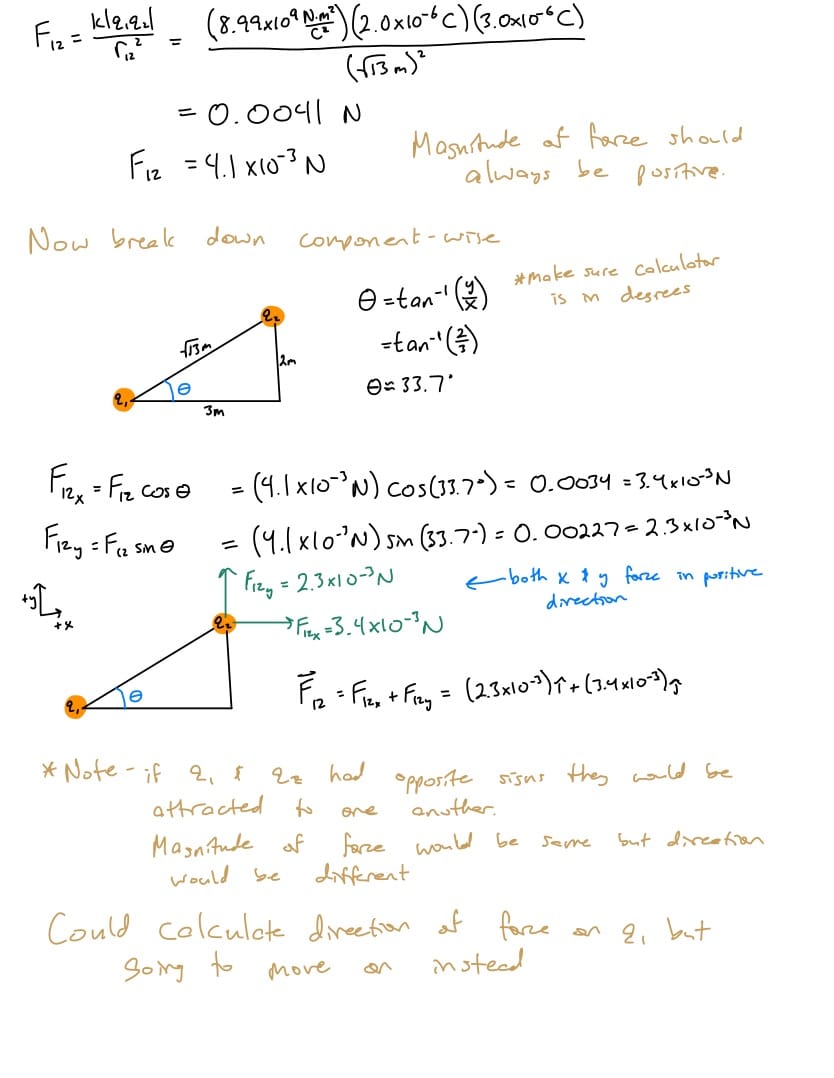 F₁₂ = k|q₁q₂| / r₁₂² = (8.99x10⁹ N·m²/C²)(2.0x10⁻⁶C)(3.0x10⁻⁶C) / (√13 m)²
= 0.0041 N
F₁₂ = 4.1 x10⁻³ N
Magnitude of force should
always be positive.
Now break down component-wise
θ = tan⁻¹(y/x)
*make sure calculator
is in degrees
= tan⁻¹(2/3)
θ ≈ 33.7°
q₂
√13 m
2m
q₁
θ
3m
F₁₂ₓ = F₁₂ cos θ = (4.1x10⁻³N) cos(33.7°) = 0.0034 = 3.4x10⁻³N
F₁₂y = F₁₂ sin θ = (4.1x10⁻³N) sin(33.7°) = 0.00227 = 2.3x10⁻³N
F₁₂y = 2.3x10⁻³N
← both x & y force in positive
direction
+y
+x
q₂
F₁₂ₓ = 3.4x10⁻³N
q₁
θ
F⃗₁₂ = F₁₂ₓ + F₁₂y = (2.3x10⁻³)↑ + (3.4x10⁻³)↑
*Note - if q₁ & q₂ had opposite signs they would be
attracted to one another.
Magnitude of force would be same but direction
would be different
Could calculate direction of force on q₁ but
going to move on instead